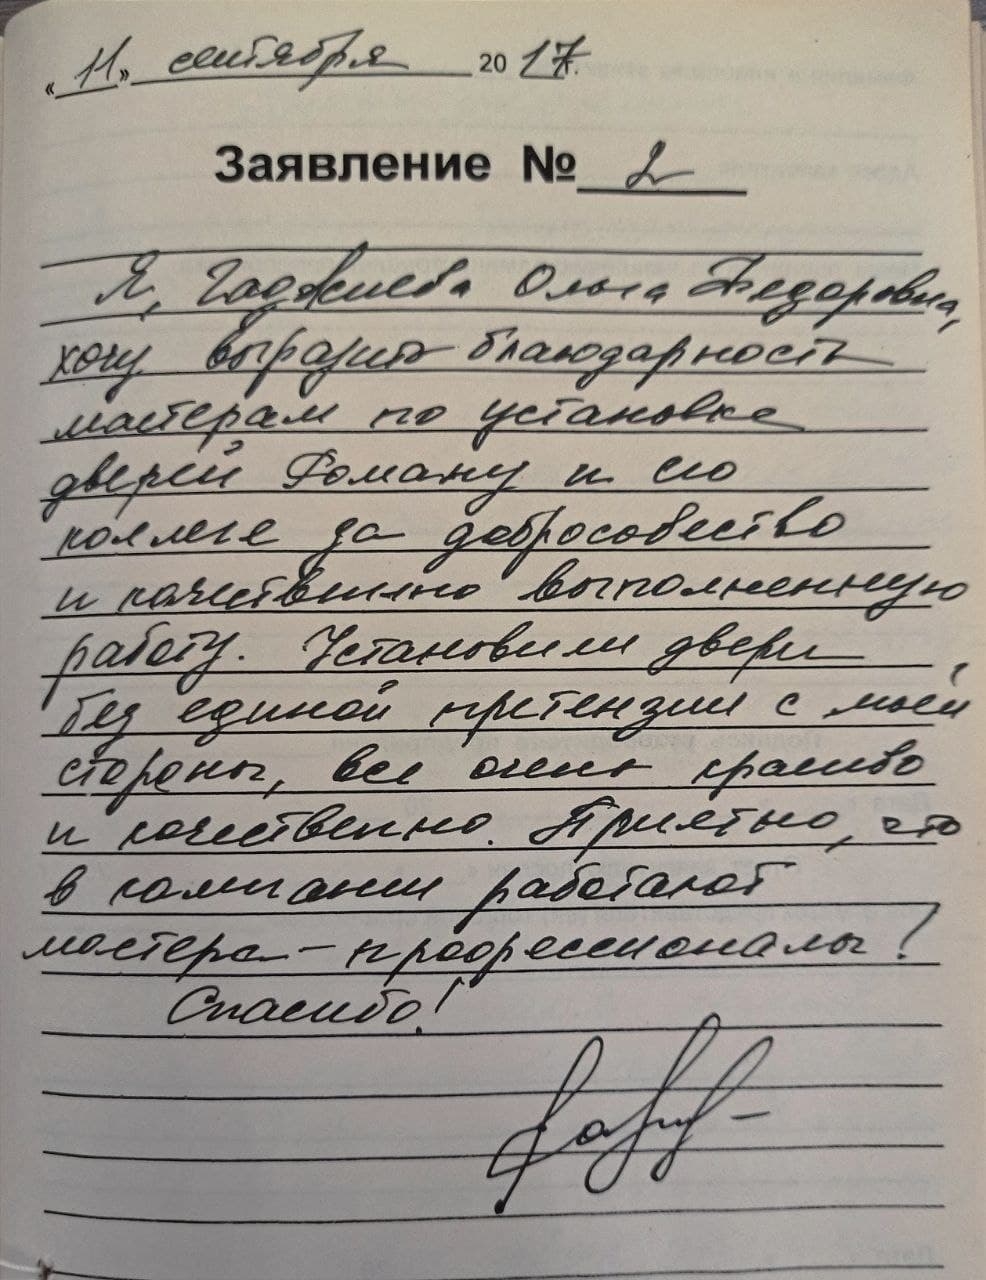 « 11 » сентября 2017г.
Заявление № 2
Я, Гаджиева Ольга Федоровна,
хочу выразить благодарность
мастерам по установке
дверей Роману и его
коллеге за добрособество
и качественно выполненную
работу. Установили двери
без единой претензии с моей
стороны, все очень красиво
и качественно. Приятно, что
в компании работают
мастера – профессионалы!
Спасибо!